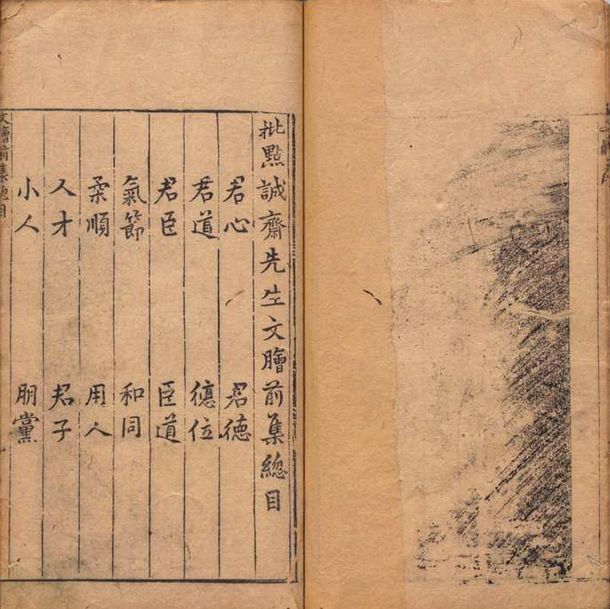 批點誠齋先生文膾前集總目
君心 君德
君道 德位
君臣 臣道
氣節 和同
柔順 用人
人才 君子
小人 朋黨
文膾前集總目